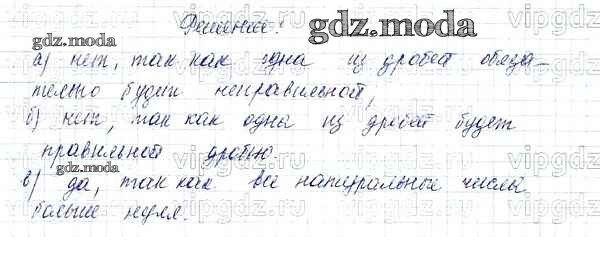 Решение!
gdz.moda
gdz.moda
а) нет, так как одна из дробей обяза-
тельно будет неправильной,
б) нет, так как одна из дробей будет
правильной дробью.
gdz.moda
в) да, так как все натуральные числа
больше нуля.